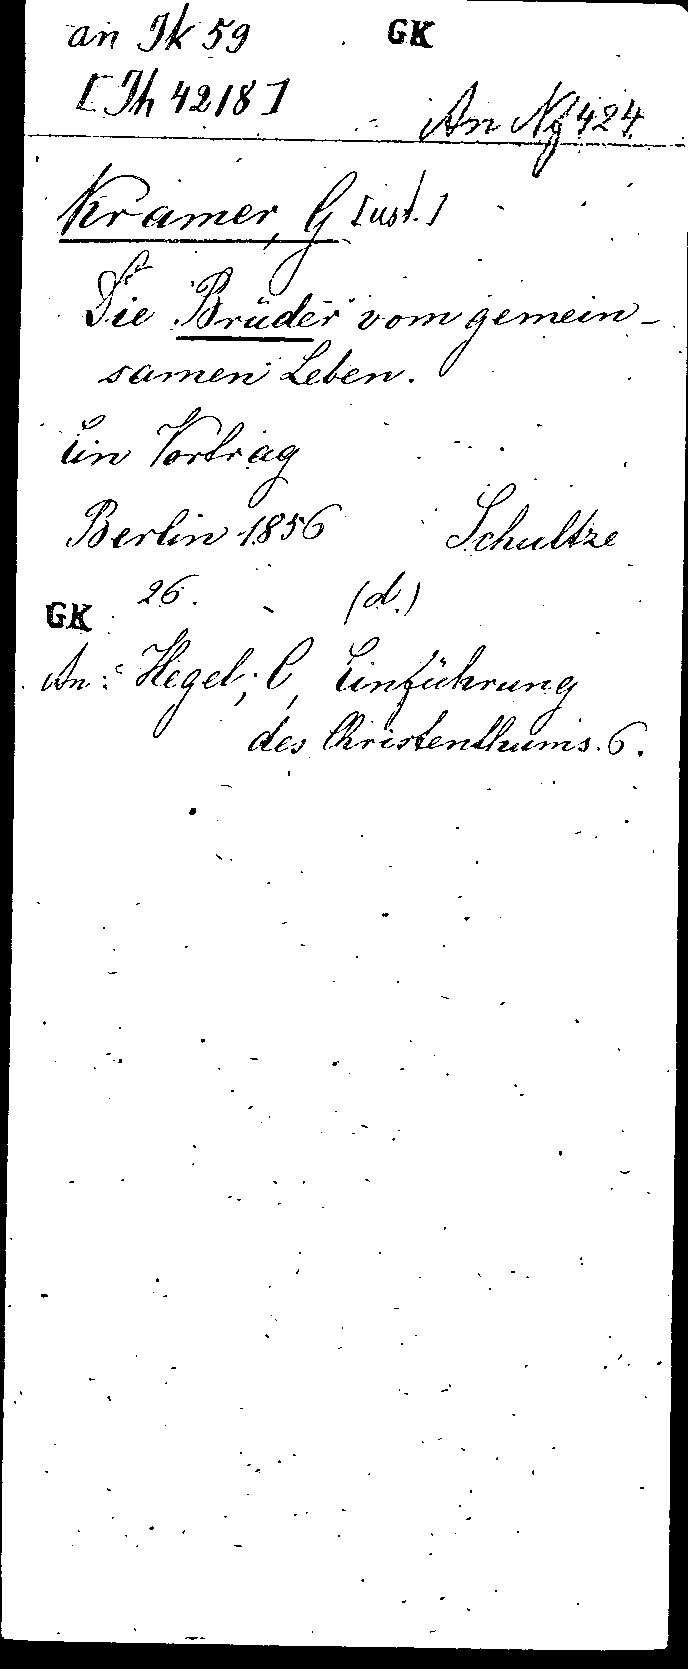 an Ik 59 GK
[Th 4218]
An Ng 424
Kramer, G [ust.]
Die Brüder vom gemein-
samen Leben.
Ein Vortrag
Berlin 1856 Schultze
26. (d.)
GK
An: Hegel, C, Einführung
des Christenthums. 6.